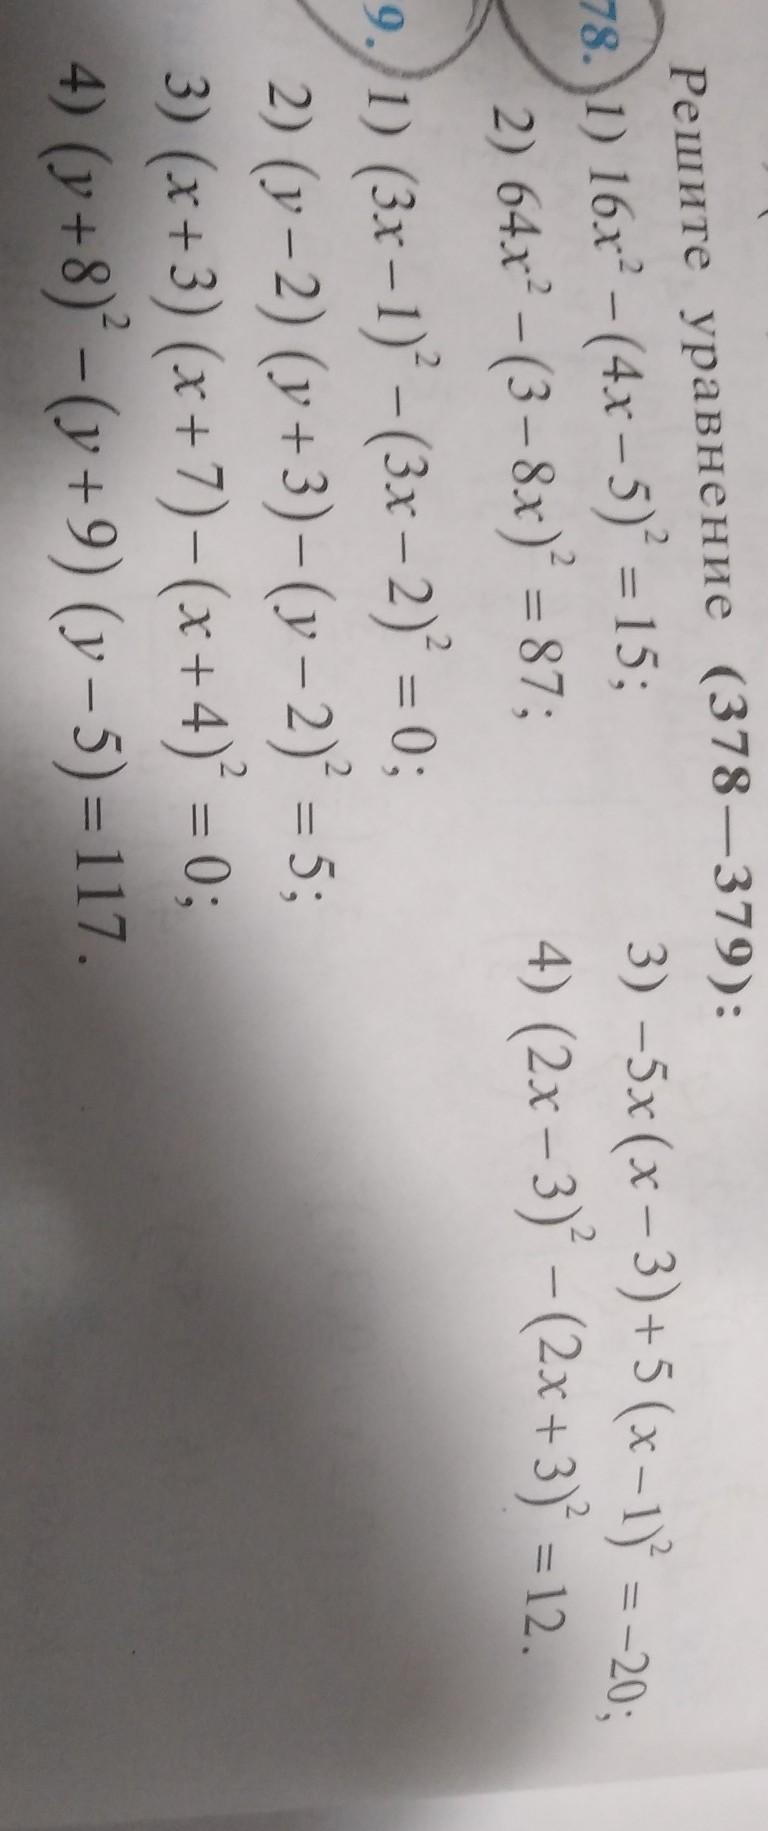 Решите уравнение (378—379):
78. 1) 16x² – (4x – 5)² = 15; 3) –5x(x – 3) + 5(x – 1)² = –20;
2) 64x² – (3 – 8x)² = 87; 4) (2x – 3)² – (2x + 3)² = 12.
9. 1) (3x – 1)² – (3x – 2)² = 0;
2) (y – 2)(y + 3) – (y – 2)² = 5;
3) (x + 3)(x + 7) – (x + 4)² = 0;
4) (y + 8)² – (y + 9)(y – 5) = 117.